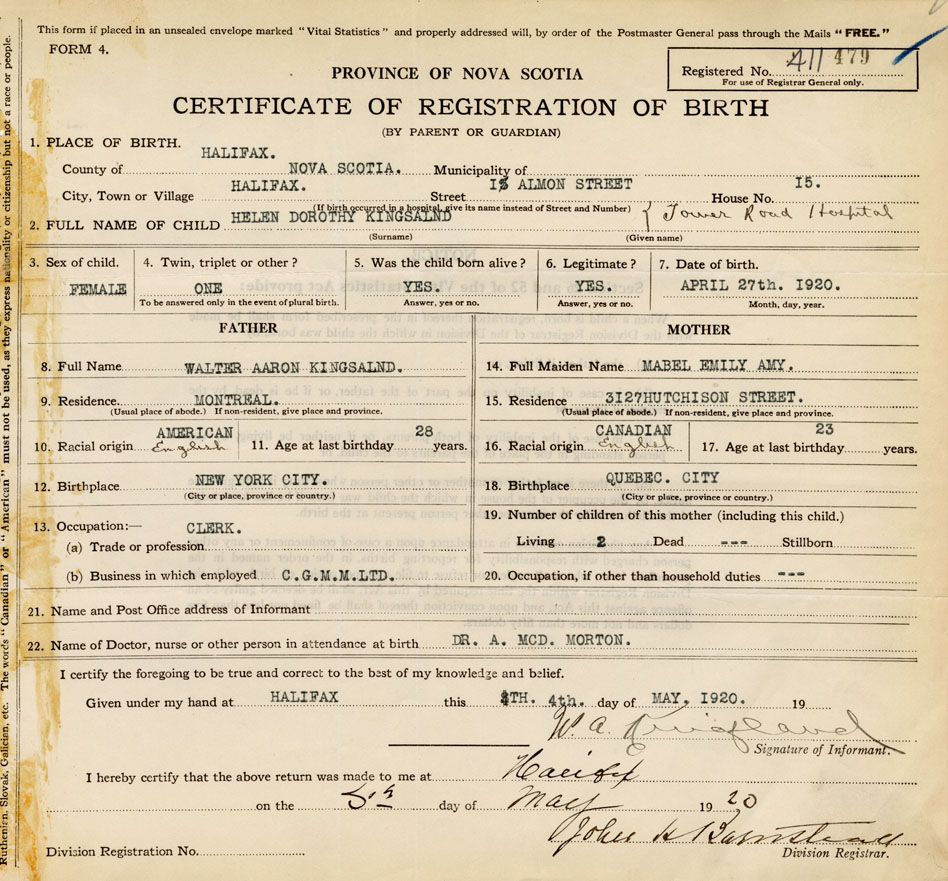 This form if placed in an unsealed envelope marked "Vital Statistics" and properly addressed will, by order of the Postmaster General pass through the Mails "FREE."
FORM 4.
Registered No. 411 479
For use of Registrar General only.
PROVINCE OF NOVA SCOTIA
CERTIFICATE OF REGISTRATION OF BIRTH
(BY PARENT OR GUARDIAN)
1. PLACE OF BIRTH.
County of HALIFAX. NOVA SCOTIA. Municipality of
City, Town or Village HALIFAX. Street 15 ALMON STREET House No. 15.
(If birth occurred in a hospital, give its name instead of Street and Number) { Tower Road Hospital
2. FULL NAME OF CHILD HELEN DOROTHY KINGSALND
(Surname) (Given name)
3. Sex of child. 4. Twin, triplet or other? 5. Was the child born alive? 6. Legitimate? 7. Date of birth.
FEMALE ONE YES. YES. APRIL 27th. 1920.
To be answered only in the event of plural birth. Answer, yes or no. Answer, yes or no. Month, day, year.
FATHER
8. Full Name WALTER AARON KINGSALND.
9. Residence. MONTREAL.
(Usual place of abode.) If non-resident, give place and province.
10. Racial origin AMERICAN English 11. Age at last birthday 28 years.
12. Birthplace NEW YORK CITY.
(City or place, province or country.)
13. Occupation:— CLERK.
(a) Trade or profession
(b) Business in which employed C.G.M.M.LTD.
MOTHER
14. Full Maiden Name MABEL EMILY AMY.
15. Residence 3127HUTCHISON STREET.
(Usual place of abode.) If non-resident, give place and province.
16. Racial origin CANADIAN English 17. Age at last birthday 23 years.
18. Birthplace QUEBEC. CITY
(City or place, province or country.)
19. Number of children of this mother (including this child.)
Living 2 Dead --- Stillborn
20. Occupation, if other than household duties ---
21. Name and Post Office address of Informant
22. Name of Doctor, nurse or other person in attendance at birth DR. A. MCD. MORTON.
I certify the foregoing to be true and correct to the best of my knowledge and belief.
Given under my hand at HALIFAX this TH. 4th. day of MAY, 1920. 19
W. A. Kingsland
Signature of Informant.
I hereby certify that the above return was made to me at Halifax
on the 5th day of May 1920
John H Barnstead
Division Registrar.
Division Registration No.
Ruthenian, Slovak, Galician, etc. The words "Canadian" or "American" must not be used, as they express nationality or citizenship but not a race or people.